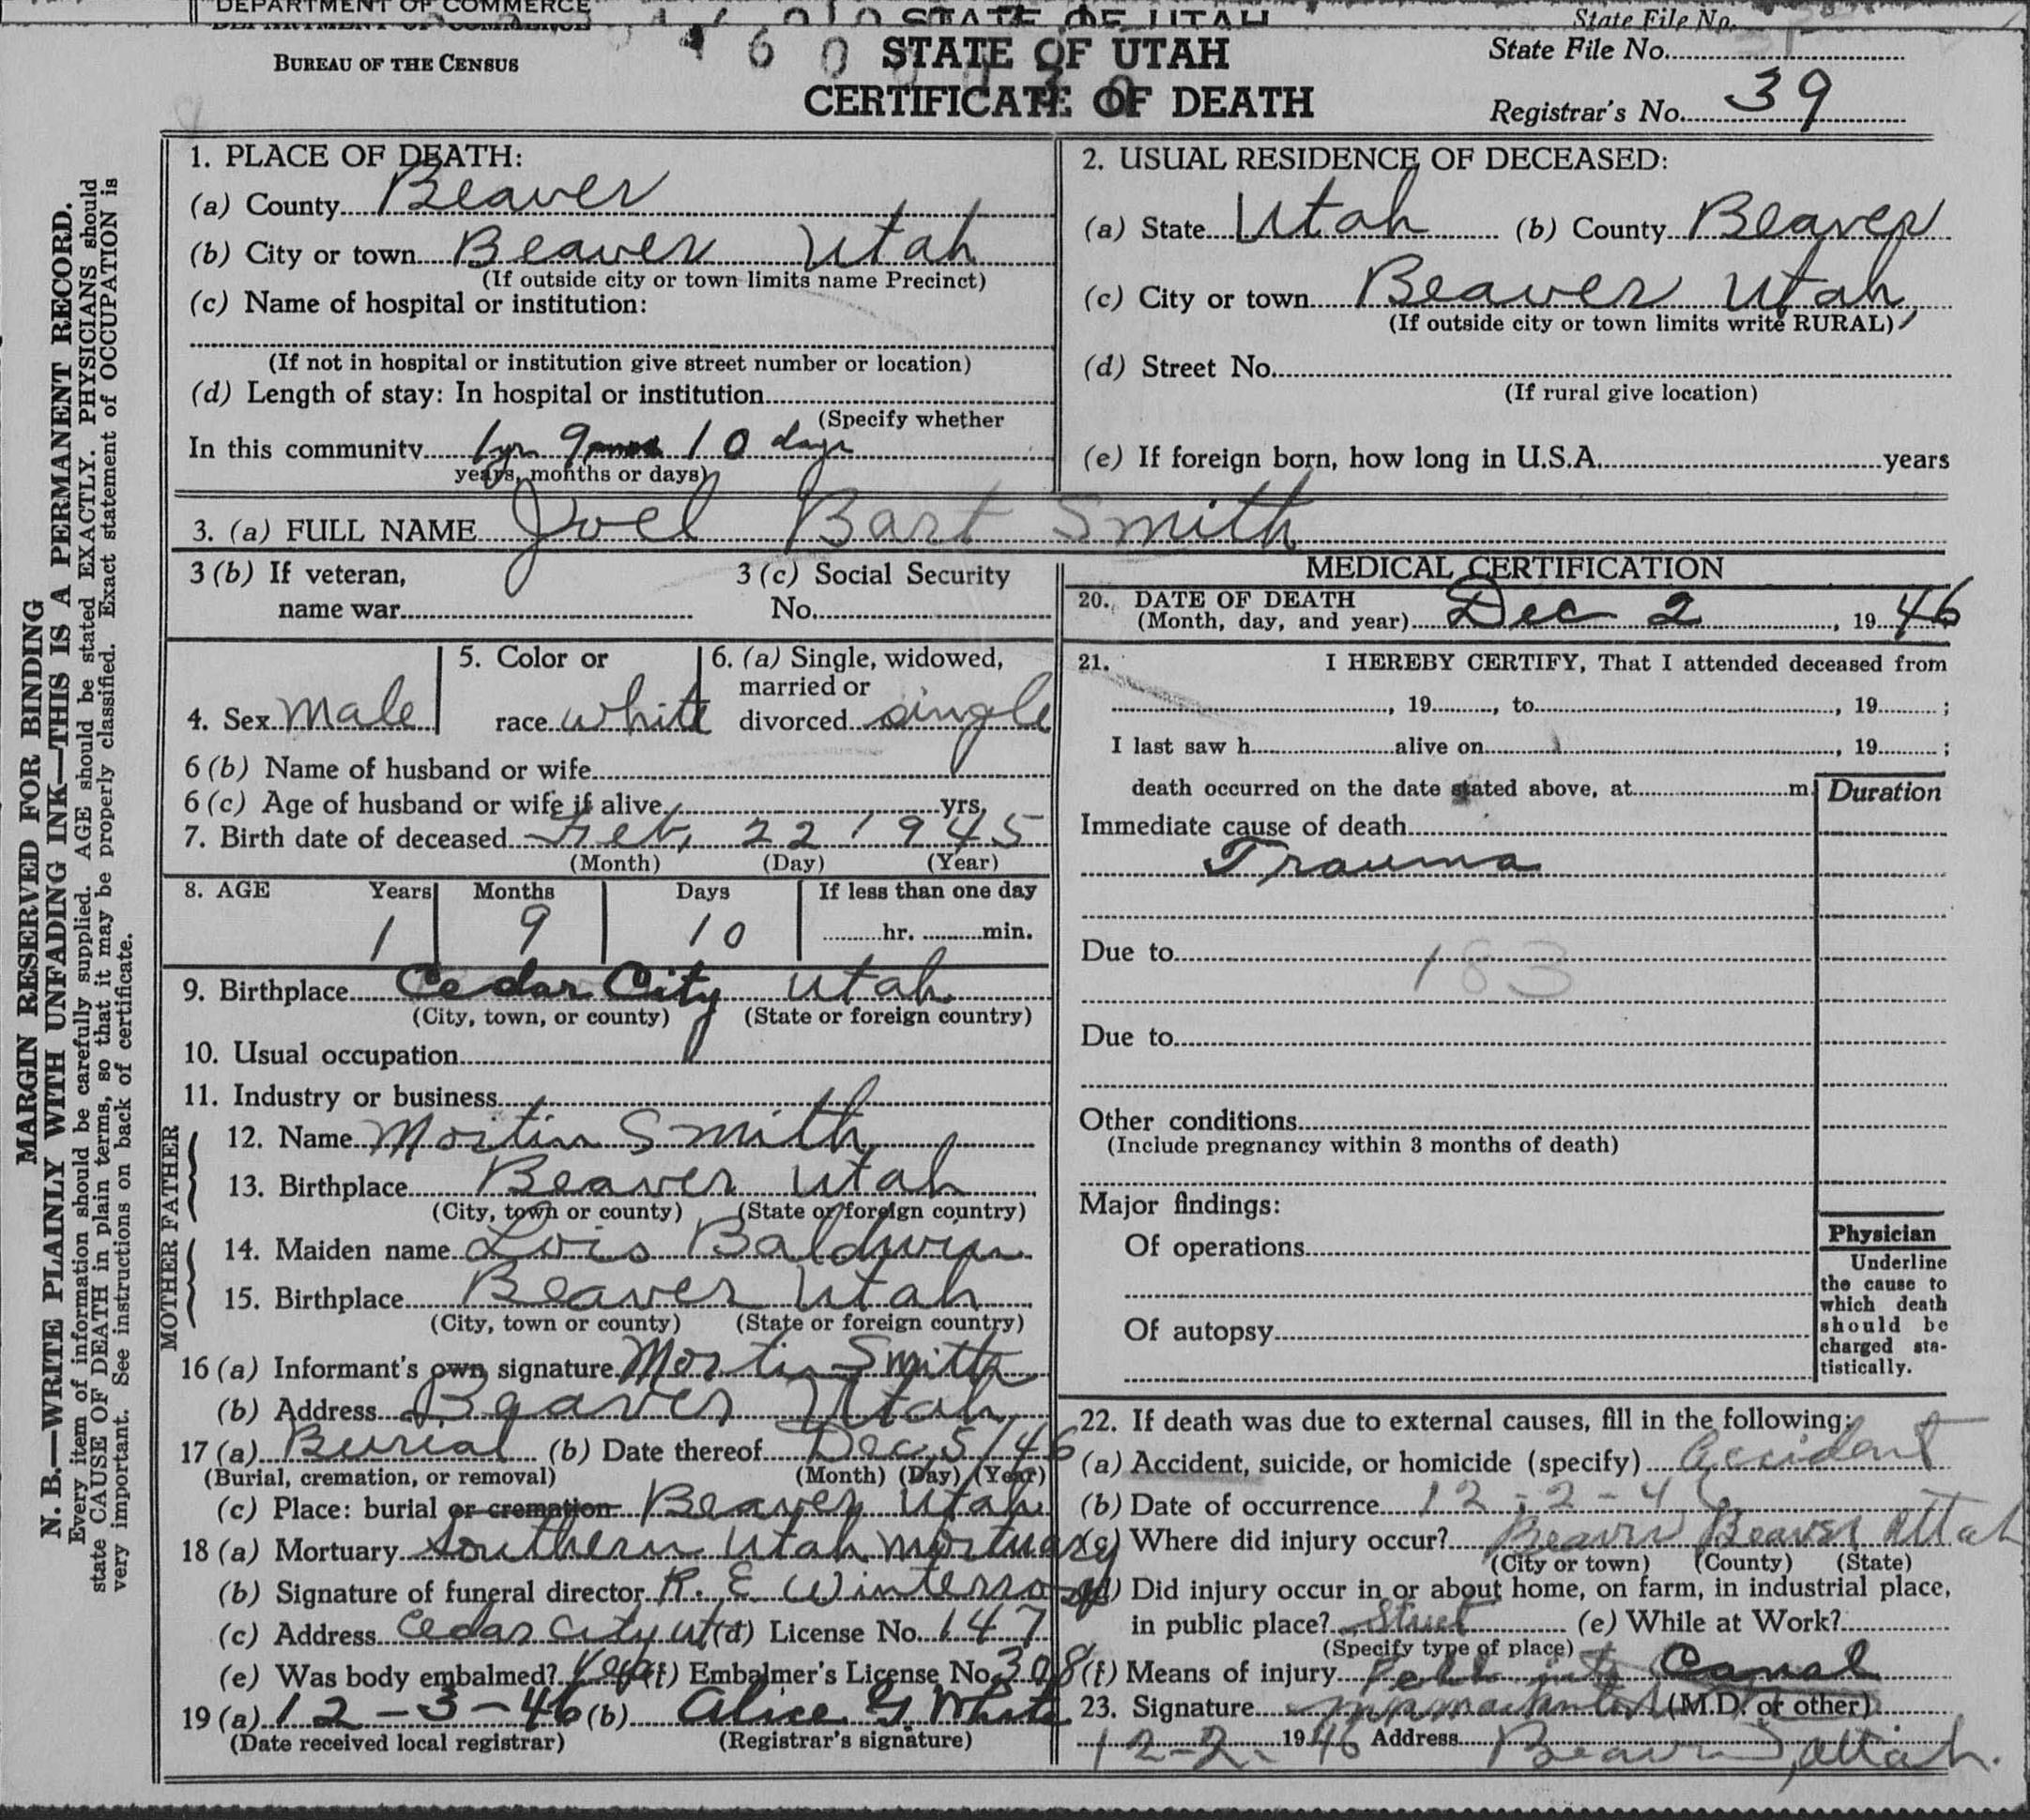 DEPARTMENT OF COMMERCE
STATE OF UTAH
State File No.
BUREAU OF THE CENSUS
STATE OF UTAH
State File No.
CERTIFICATE OF DEATH
Registrar's No. 39
MARGIN RESERVED FOR BINDING
N. B.—WRITE PLAINLY WITH UNFADING INK—THIS IS A PERMANENT RECORD.
Every item of information should be carefully supplied. AGE should be stated EXACTLY. PHYSICIANS should
state CAUSE OF DEATH in plain terms, so that it may be properly classified. Exact statement of OCCUPATION is
very important. See instructions on back of certificate.
1. PLACE OF DEATH:
(a) County Beaver
(b) City or town Beaver Utah
(If outside city or town limits name Precinct)
(c) Name of hospital or institution:
(If not in hospital or institution give street number or location)
(d) Length of stay: In hospital or institution
(Specify whether
In this community 1 yr 9 mos 10 days
years, months or days)
2. USUAL RESIDENCE OF DECEASED:
(a) State Utah (b) County Beaver
(c) City or town Beaver Utah,
(If outside city or town limits write RURAL)
(d) Street No.
(If rural give location)
(e) If foreign born, how long in U.S.A. years
3. (a) FULL NAME Joel Bart Smith
3 (b) If veteran,
name war
3 (c) Social Security
No.
4. Sex Male
5. Color or
race white
6. (a) Single, widowed,
married or
divorced single
6 (b) Name of husband or wife
6 (c) Age of husband or wife if alive yrs.
7. Birth date of deceased Feb, 22 1945
(Month) (Day) (Year)
8. AGE Years Months Days If less than one day
1 9 10 hr. min.
9. Birthplace Cedar City Utah
(City, town, or county) (State or foreign country)
10. Usual occupation
11. Industry or business
FATHER
12. Name Mortin Smith
13. Birthplace Beaver Utah
(City, town or county) (State or foreign country)
MOTHER
14. Maiden name Lois Baldwin
15. Birthplace Beaver Utah
(City, town or county) (State or foreign country)
16 (a) Informant's own signature Mortin Smith
(b) Address Beaver Utah
17 (a) Burial (b) Date thereof Dec 5/46
(Burial, cremation, or removal) (Month) (Day) (Year)
(c) Place: burial or cremation Beaver Utah
18 (a) Mortuary Southern Utah Mortuary
(b) Signature of funeral director R. E Winterrose
(c) Address Cedar City Ut (d) License No. 147
(e) Was body embalmed? Yes (f) Embalmer's License No. 308
19 (a) 12-3-46 (b) Alice G. White
(Date received local registrar) (Registrar's signature)
MEDICAL CERTIFICATION
20. DATE OF DEATH
(Month, day, and year) Dec 2, 1946
21. I HEREBY CERTIFY, That I attended deceased from
, 19, to, 19;
I last saw h alive on, 19;
death occurred on the date stated above, at m.
Duration
Immediate cause of death
Trauma
Due to 183
Due to
Other conditions
(Include pregnancy within 3 months of death)
Major findings:
Of operations
Of autopsy
Physician
Underline
the cause to
which death
should be
charged sta-
tistically.
22. If death was due to external causes, fill in the following:
(a) Accident, suicide, or homicide (specify) Accident
(b) Date of occurrence 12-2-46
(c) Where did injury occur? Beaver Beaver Utah
(City or town) (County) (State)
(d) Did injury occur in or about home, on farm, in industrial place,
in public place? Street (e) While at Work?
(Specify type of place)
(f) Means of injury Fell into Canal
23. Signature (M.D. or other)
12-2- 1946 Address Beaver, Utah.